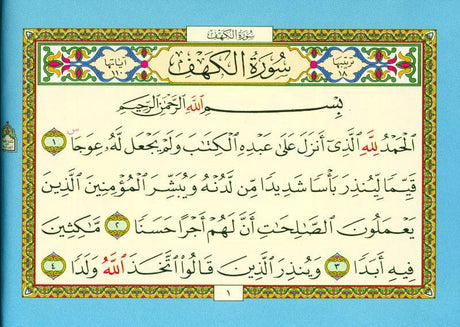 سُورَةُ الكَهْفِ
ترتيبها ١٨ سُورَةُ الكَهْفِ آياتها ١١٠
بِسْمِ اللَّهِ الرَّحْمَٰنِ الرَّحِيمِ
الْحَمْدُ لِلَّهِ الَّذِي أَنزَلَ عَلَىٰ عَبْدِهِ الْكِتَابَ وَلَمْ يَجْعَل لَّهُ عِوَجَا ۜ ١
قَيِّمًا لِّيُنذِرَ بَأْسًا شَدِيدًا مِّن لَّدُنْهُ وَيُبَشِّرَ الْمُؤْمِنِينَ الَّذِينَ
يَعْمَلُونَ الصَّالِحَاتِ أَنَّ لَهُمْ أَجْرًا حَسَنًا ٢ مَّاكِثِينَ
فِيهِ أَبَدًا ٣ وَيُنذِرَ الَّذِينَ قَالُوا اتَّخَذَ اللَّهُ وَلَدًا ٤
١